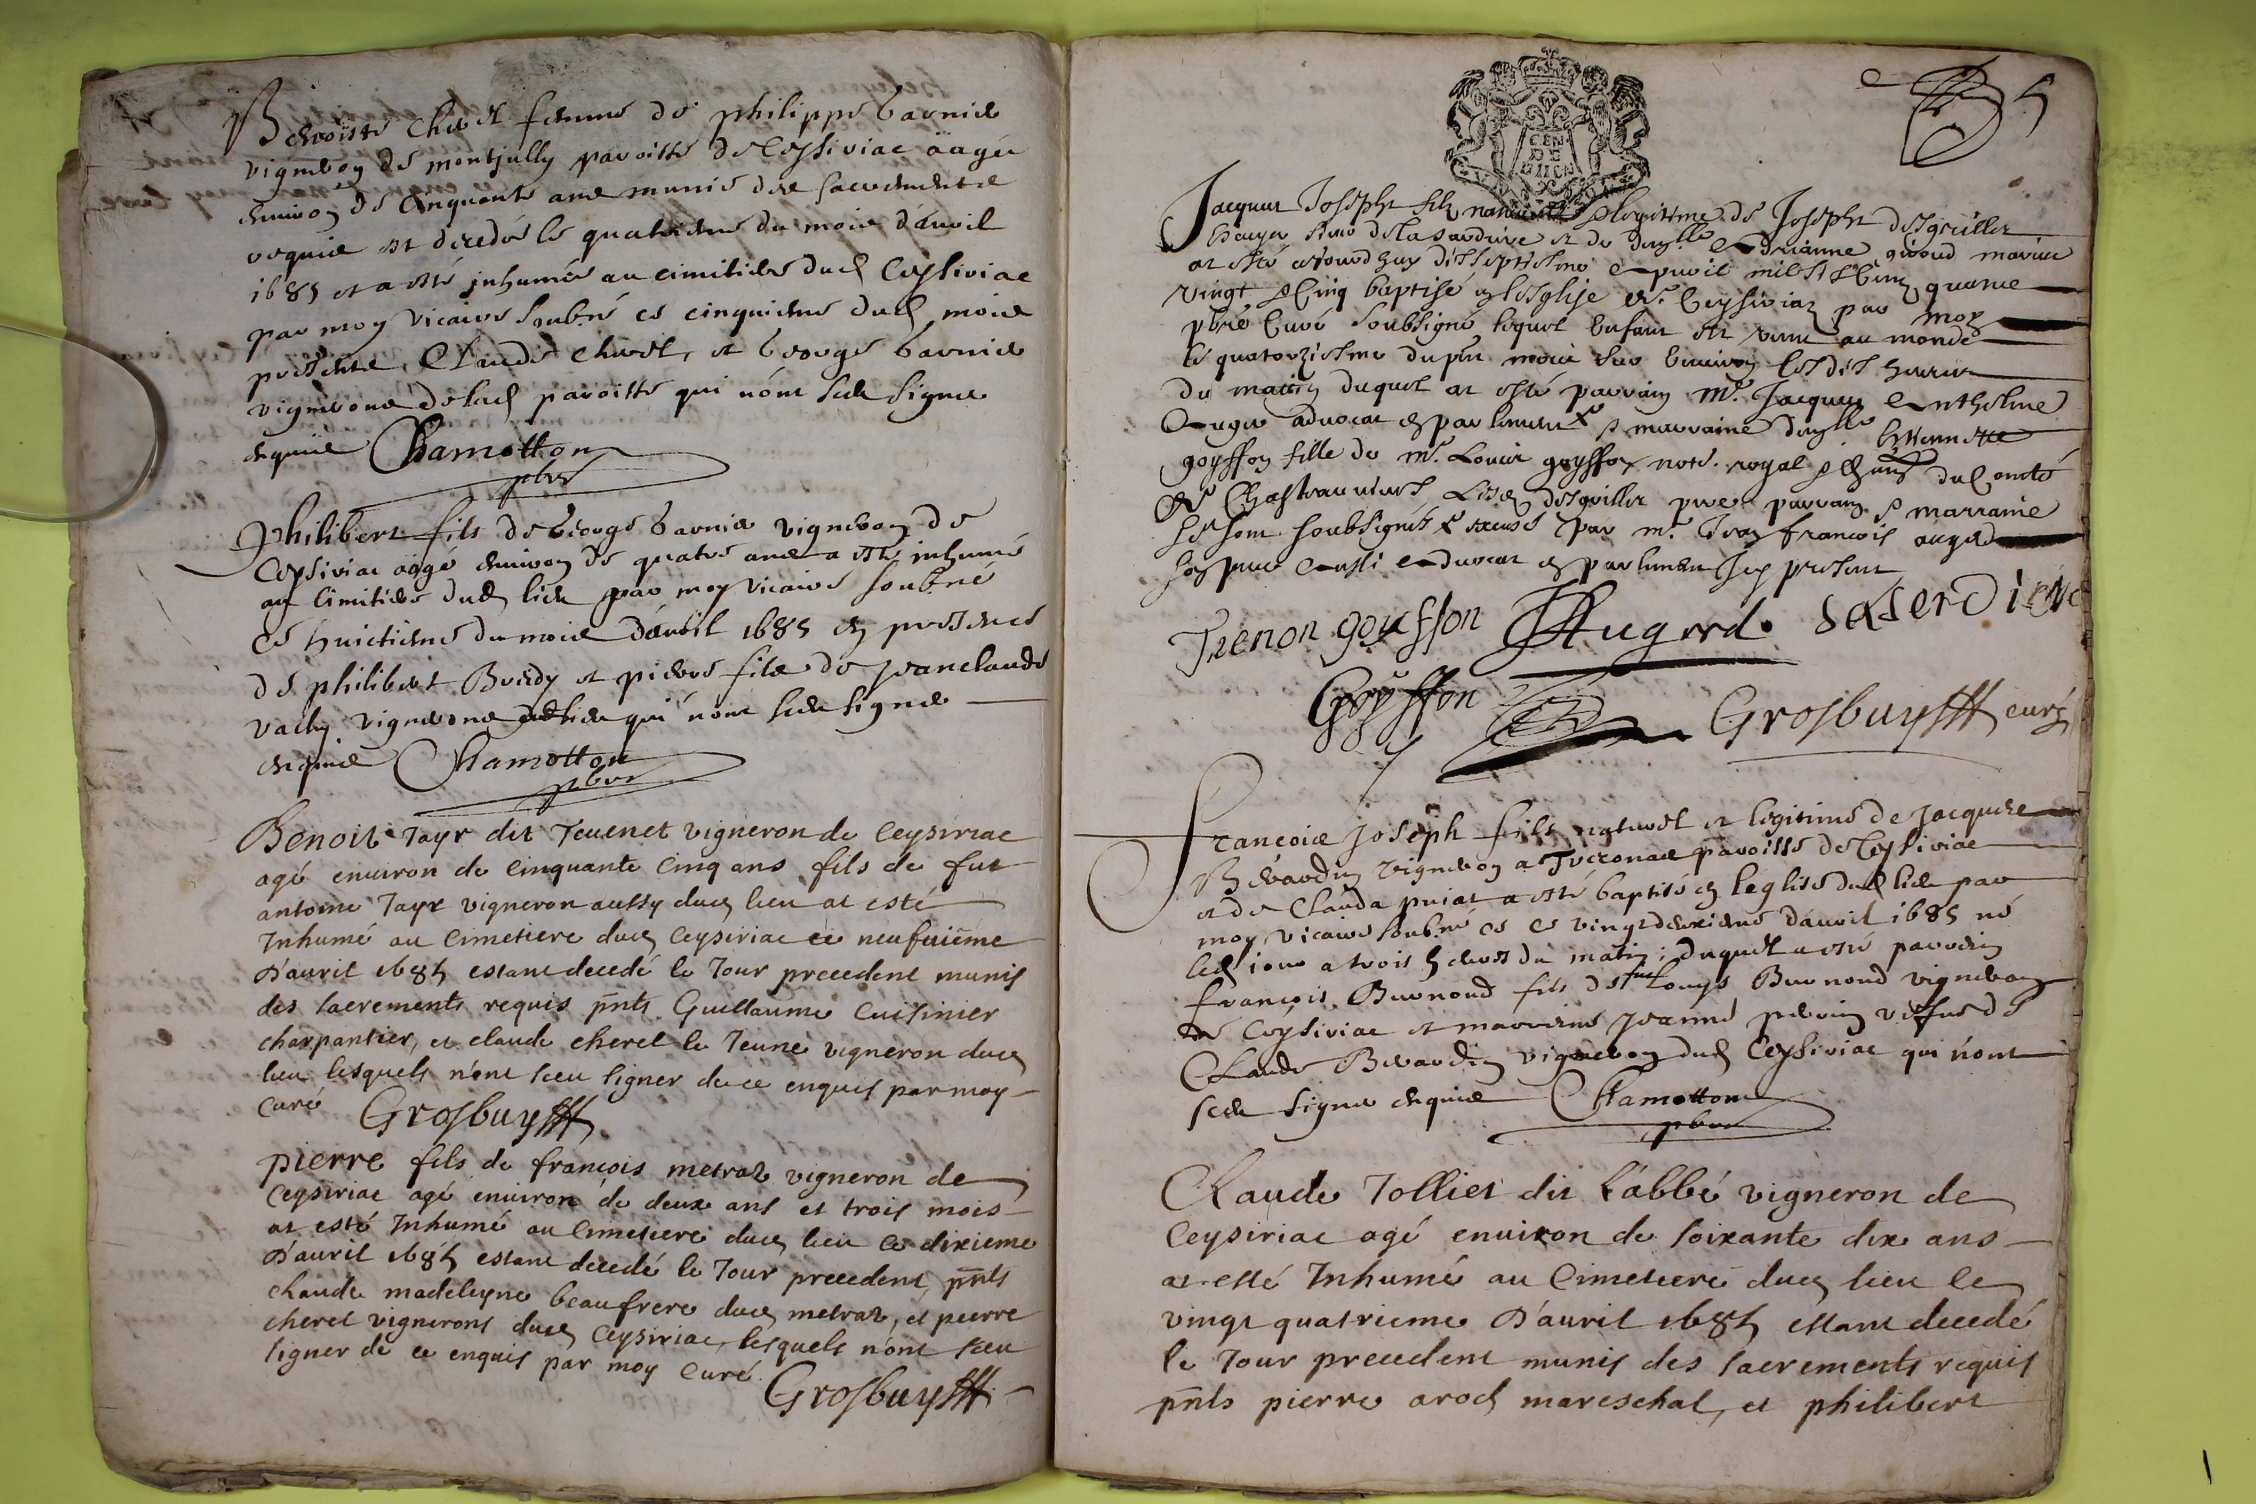 Benoiste Chevet femme de philippe barnier
vigneron de montjully paroisse de Ceysiriac aagée
environ de cinquante ans munie des sacrements
requis est decedée le quatrieme du mois d'avril
1685 et a esté inhumée au cimitiere dud Ceysiriac
par moy vicaire soub.né ce cinquieme dud mois
presents Claude Chevet, et George barnier
vignerons de lad paroisse qui nont sceu signer
enquis Chamotton
pbre
Philibert fils de George barnier vigneron de
Ceysiriac aagé environ de quatre ans a esté inhumé
au Cimitiere dud lieu par moy vicaire soub.né
ce huictieme du mois d'avril 1685 en presence
de philibert Bredy et pierre fils de Jeanclaude
vachy vignerons dud lieu qui nont sceu signer
enquis Chamotton
pbre
Benoit Tayr dit Tevenet vigneron de Ceysiriac
agé environ de Cinquante Cinq ans fils de fut
antoine Tayr vigneron aussy dud lieu at esté
Inhumé au Cimetiere dud Ceysiriac ce neufuième
D'auril 1685 estant decedé le Jour precedent munis
des sacrements requis pnts Guillaume Cuisinier
charpantier, et claude cheret le Jeune vigneron dud
lieu lesquels n'ont sceu signer de ce enquis par moy
Curé Grosbuysss
pierre fils de françois metraz vigneron de
Ceysiriac agé environ de deux ans et trois mois
at esté Inhumé au Cimetiere dud lieu ce dixieme
D'auril 1685 estant decedé le Jour precedent, pnts
claude madeleyne beaufrere dud metraz, et pierre
cheret vignerons dud Ceysiriac, lesquels n'ont sceu
signer de ce enquis par moy Curé.
Grosbuysss
5
CEN
DE
Jacques Joseph fils naturel et legitime de Joseph desgrillet
Escuyer sieur de la sardiere et de dmoyselle Adrianne giroud mariés
at esté aujourdhuy dixseptiesme Apvril mil six Cens quatre
vingt et Cinq baptisé en lesglise de Ceysiriaz par moy
pbre Curé soubsigné lequel enfant est venu au monde
le quatorziesme du pnt mois sur environ les dix heures
du matin duquel at esté parrain Mr. Jacques Anthelme
Auger advocat en parlement et marraine dmoyselle Estiennette
goyffon fille de Mr. Louis goyffon note. royal
de Chasteauvieux Led desgrillet pere parrain et marraine
se sont soubsignés par Mr. Jean françois augerd
son pere Aussi Advocat en parlement Icy present
Tienon goyffon Augerd laserdiere
Goyffon Grosbuysss curé
Francois Joseph fils naturel et legitime de Jacques
Berardin vigneron a paroisse de Ceysiriac
et de Clauda puiat a esté baptisé en leglise dud lieu par
moy vicaire soub.né ce vingtdeuxieme d'avril 1685 né
led jour a trois heures du matin; duquel a esté parrein
françois Burnoud fils de fut Louys Burnoud vigneron
de Ceysiriac et marreine Jeanne perrin veffue de
Claude Berardin vigneron dud Ceysiriac qui n'ont
sceu signer enquis Chamotton
pbre
Claude Tolliet dit l'abbé vigneron de
Ceysiriac agé environ de soixante dix ans
at esté Inhumé au Cimetiere dud lieu le
vingt quatrieme D'auril 1685 estant decedé
le Jour precedent munis des sacrements requis
pnts pierre arod mareschal, et philibert